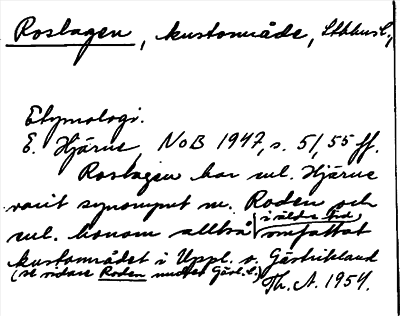 Roslagen, kustområde, Sthlms l.,
Etymologi.
E. Hjärne NoB 1947, s. 51, 55 ff.
Roslagen har enl. Hjärne
varit synonymt m. Roden och
enl. honom alltså (i äldre tid) omfattat
kustområdet i Uppl. o. Gästrikland
(se vidare Roden under Gävl. l.)
Th. A. 1954.